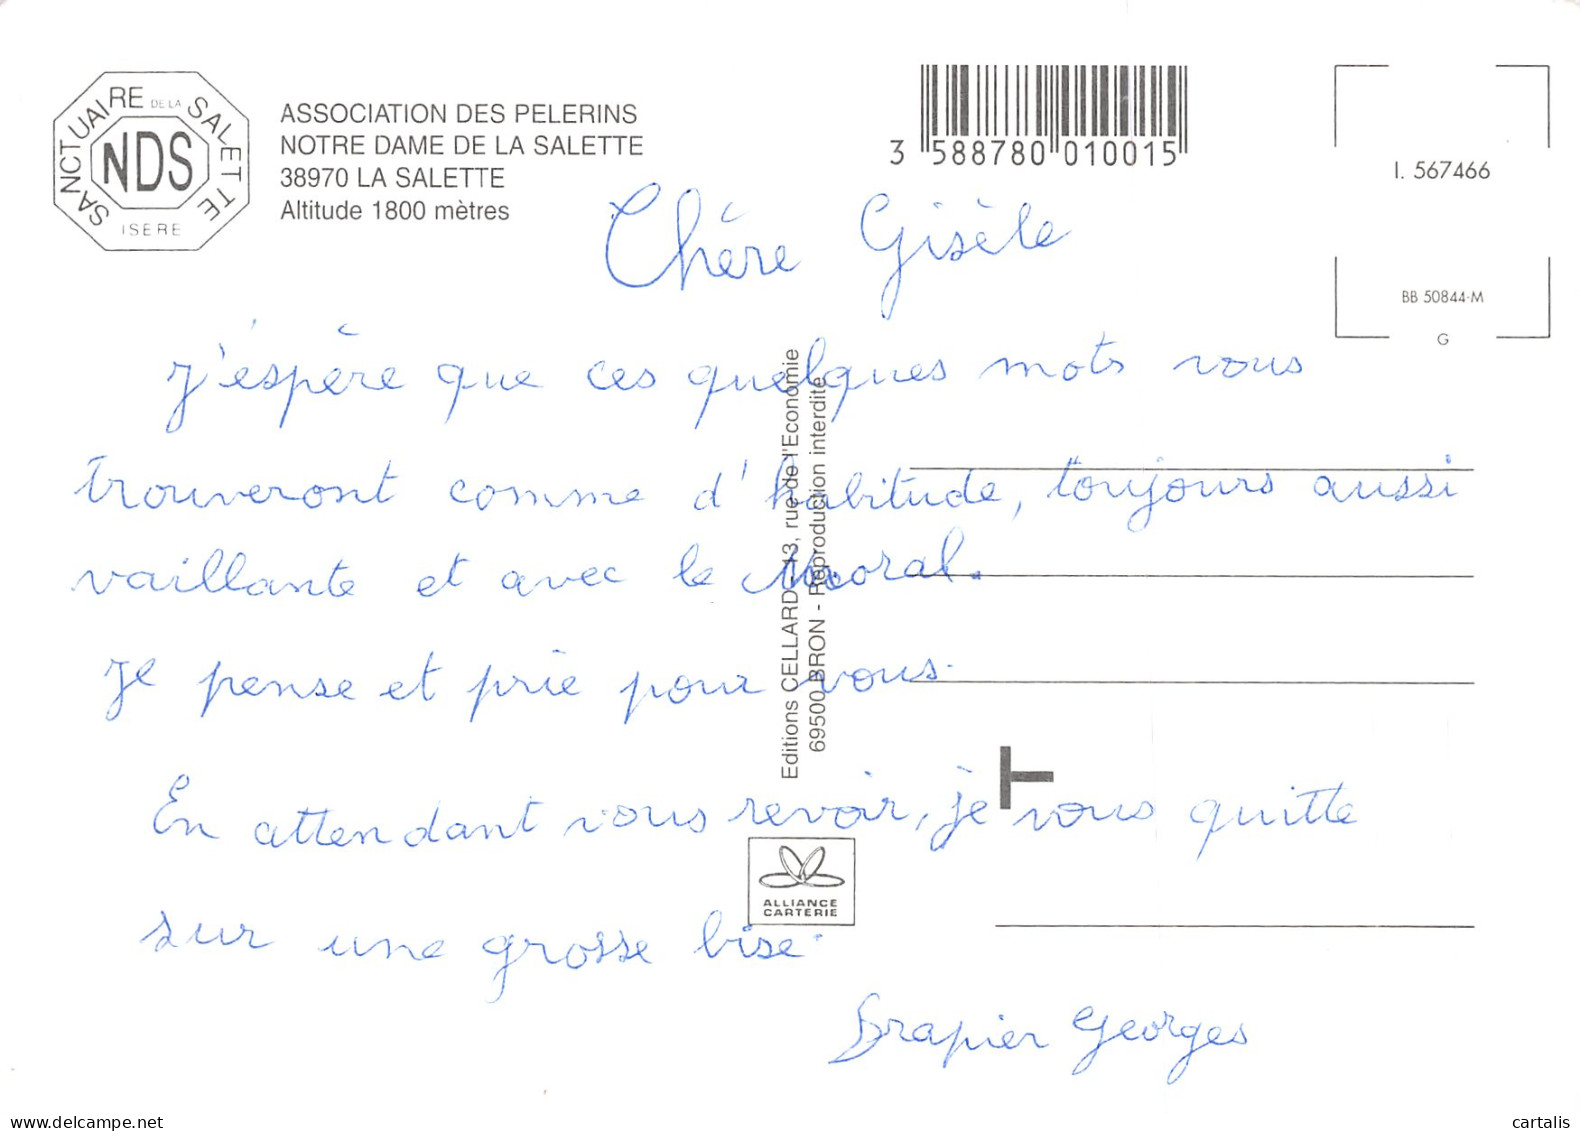 SANCTUAIRE DE LA SALETTE
NDS
ISERE
ASSOCIATION DES PELERINS
NOTRE DAME DE LA SALETTE
38970 LA SALETTE
Altitude 1800 mètres
3 588780 010015
I. 567466
BB 50844-M
G
Chère Gisèle
J'espère que ces quelques mots vous
trouveront comme d'habitude, toujours aussi
vaillante et avec le Moral.
Je pense et prie pour vous.
En attendant vous revoir, je vous quitte
sur une grosse bise.
Drapier Georges
Editions CELLARD - 13, rue de l'Economie
69500 BRON - Reproduction interdite
T
ALLIANCE
CARTERIE
www.delcampe.net
cartalis